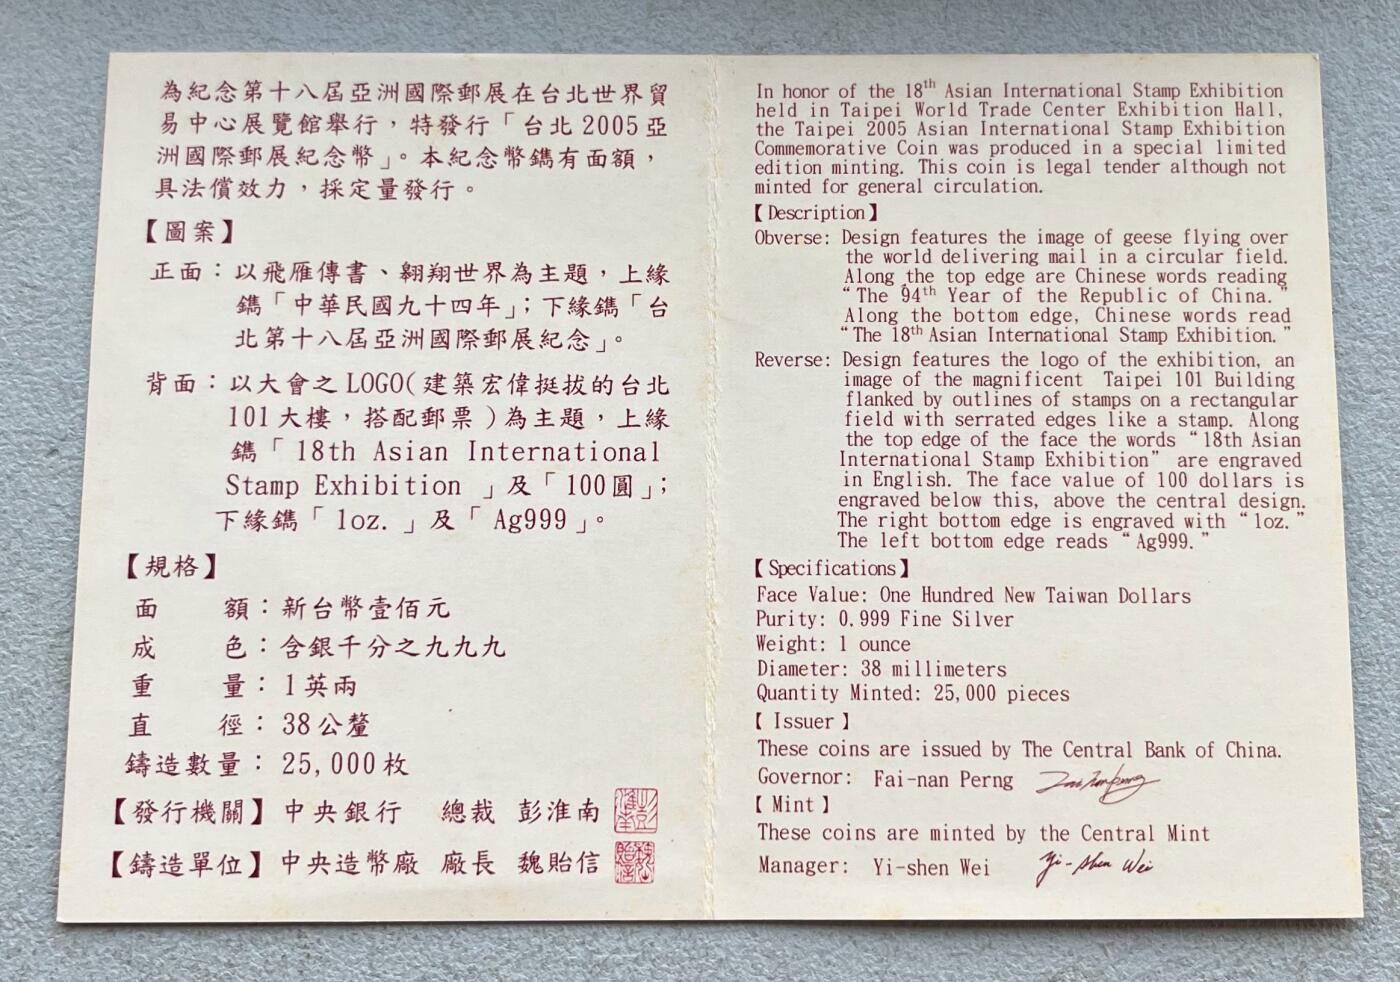 為紀念第十八屆亞洲國際郵展在台北世界貿
易中心展覽館舉行，特發行「台北 2005 亞
洲國際郵展紀念幣」。本紀念幣鐫有面額，
具法償效力，採定量發行。
【圖案】
正面：以飛雁傳書、翱翔世界為主題，上緣
鐫「中華民國九十四年」；下緣鐫「台
北第十八屆亞洲國際郵展紀念」。
背面：以大會之 LOGO(建築宏偉挺拔的台北
101大樓，搭配郵票)為主題，上緣
鐫「18th Asian International
Stamp Exhibition 」及「100圓」；
下緣鐫「 1oz. 」及「 Ag999 」。
【規格】
面　　額：新台幣壹佰元
成　　色：含銀千分之九九九
重　　量：1英兩
直　　徑：38公釐
鑄造數量：25,000枚
【發行機關】中央銀行　總裁　彭淮南
【鑄造單位】中央造幣廠　廠長　魏貽信
In honor of the 18th Asian International Stamp Exhibition
held in Taipei World Trade Center Exhibition Hall,
the Taipei 2005 Asian International Stamp Exhibition
Commemorative Coin was produced in a special limited
edition minting. This coin is legal tender although not
minted for general circulation.
【Description】
Obverse: Design features the image of geese flying over
the world delivering mail in a circular field.
Along the top edge are Chinese words reading
“The 94th Year of the Republic of China.”
Along the bottom edge, Chinese words read
“The 18th Asian International Stamp Exhibition.”
Reverse: Design features the logo of the exhibition, an
image of the magnificent Taipei 101 Building
flanked by outlines of stamps on a rectangular
field with serrated edges like a stamp. Along
the top edge of the face the words “18th Asian
International Stamp Exhibition” are engraved
in English. The face value of 100 dollars is
engraved below this, above the central design.
The right bottom edge is engraved with “1oz.”
The left bottom edge reads “Ag999.”
【Specifications】
Face Value: One Hundred New Taiwan Dollars
Purity: 0.999 Fine Silver
Weight: 1 ounce
Diameter: 38 millimeters
Quantity Minted: 25,000 pieces
【 Issuer 】
These coins are issued by The Central Bank of China.
Governor: Fai-nan Perng
【 Mint 】
These coins are minted by the Central Mint
Manager: Yi-shen Wei Yi-shen Wei